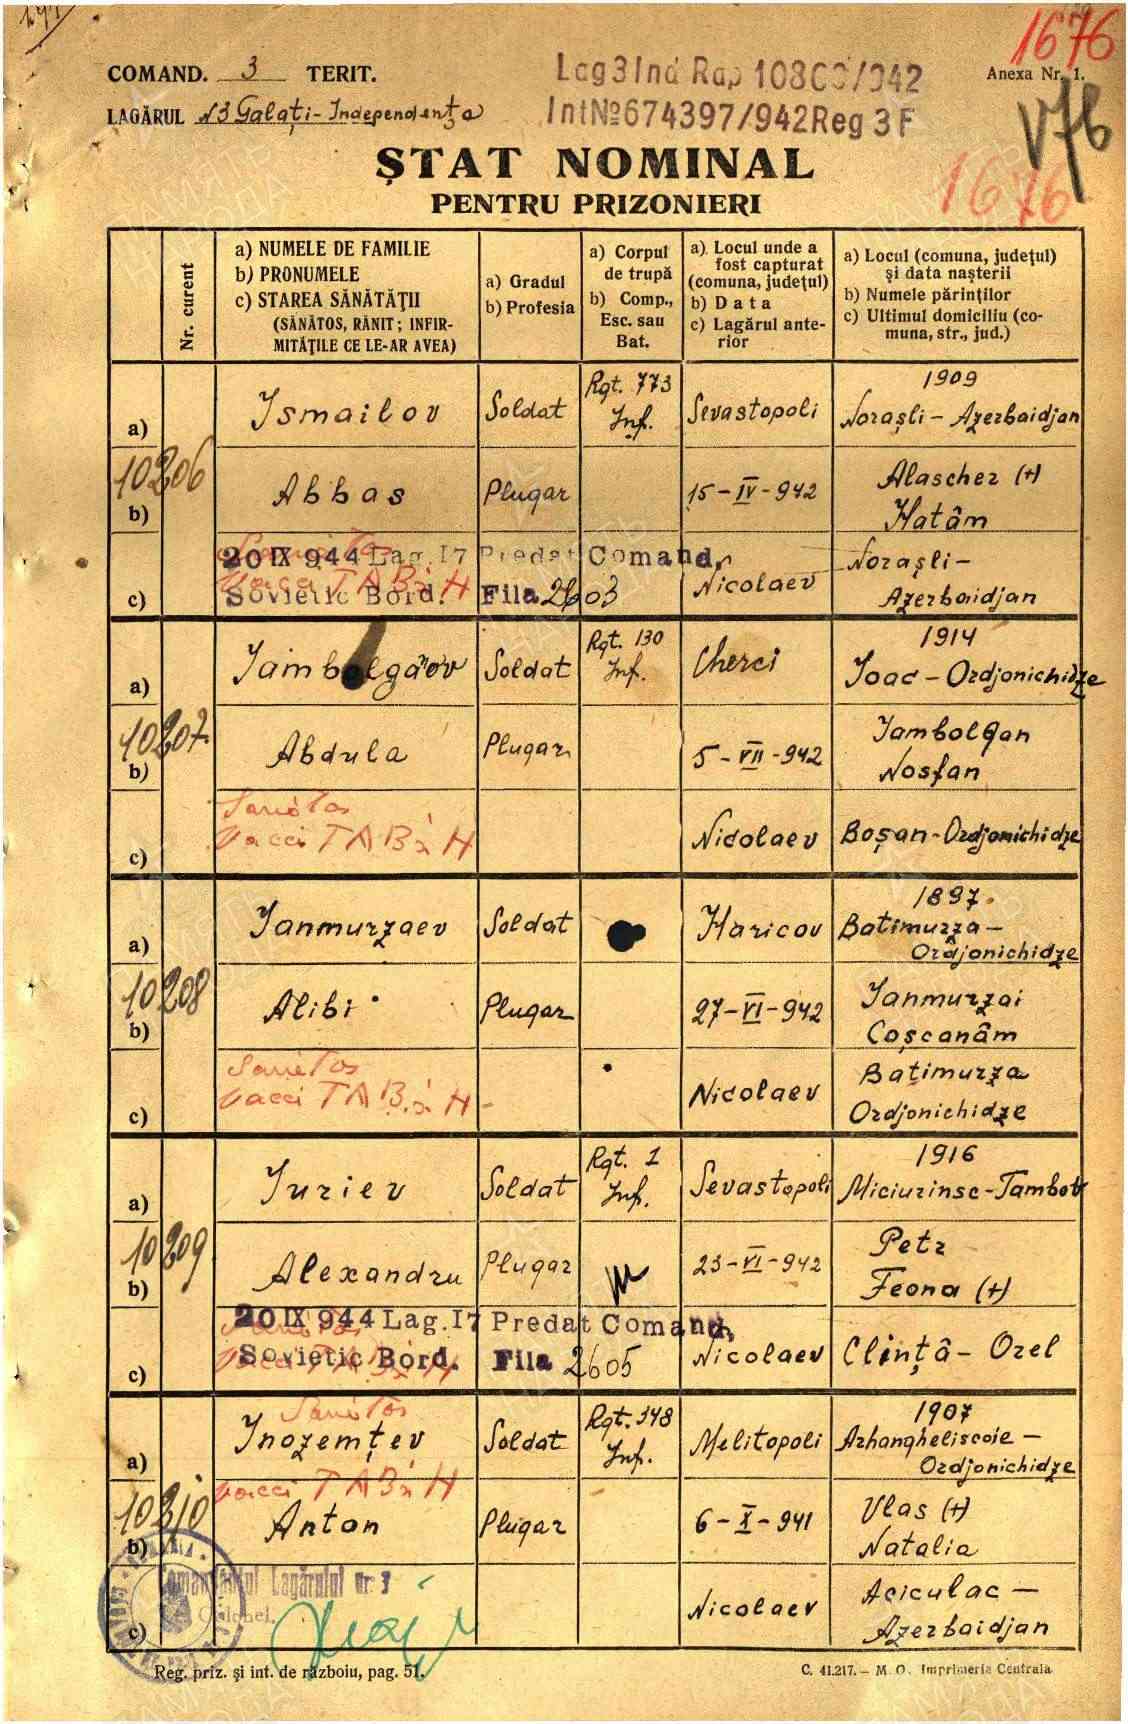 1676
COMAND. 3 TERIT.
Lag 3 Ind Rap 108
/942
Anexa Nr. 1.
LAGĂRUL N3 Galați-Independența
Int№674397/942Reg 3F
V76
ȘTAT NOMINAL
1676
PENTRU PRIZONIERI
Nr. curent
a) NUMELE DE FAMILIE
b) PRONUMELE
c) STAREA SĂNĂTĂȚII
(SĂNĂTOS, RĂNIT; INFIR-
MITĂȚILE CE LE-AR AVEA)
a) Gradul
b) Profesia
a) Corpul
de trupă
b) Comp.,
Esc. sau
Bat.
a) Locul unde a
fost capturat
(comuna, județul)
b) Data
c) Lagărul ante-
rior
a) Locul (comuna, județul)
și data nașterii
b) Numele părinților
c) Ultimul domiciliu (co-
muna, str., jud.)
a)
Ismailov
Soldat
Rgt. 773
Inf.
Sevastopoli
1909
Norașli - Azerbaidjan
10206
b)
Abbas
Plugar
15-IV-942
Alascher (+)
Hatâm
c)
Sanătos
Vacci TAB și H
20 IX 944 Lag. 17 Predat Comand.
Sovietic Bord. Fila 2603
Nicolaev
Norașli-
Azerbaidjan
a)
Iambolgaov
Soldat
Rgt. 130
Inf.
Cherci
1914
Ioac - Ordjonichidze
10207
b)
Abdula
Plugar
5-VII-942
Iambolgan
Nosfan
c)
Sanătos
Vacci TAB și H
Nicolaev
Boșan-Ordjonichidze
a)
Ianmurzaev
Soldat
Haricov
1897
Batimurza-
Ordjonichidze
10208
b)
Alibi
Plugar
27-VI-942
Ianmurzai
Coșcanâm
c)
Sanătos
Vacci TAB și H -
Nicolaev
Bațimurza
Ordjonichidze
a)
Iuriev
Soldat
Rgt. 1
Inf.
Sevastopoli
1916
Miciurinsc-Tambov
10209
b)
Alexandru
Plugar
23-VI-942
Petr
Feona (+)
c)
Sanătos
Vacci TAB și H
20 IX 944 Lag. 17 Predat Comand.
Sovietic Bord. Fila 2605
Nicolaev
Clință - Orel
a)
Sanătos
Inozemțev
Soldat
Rgt. 348
Inf.
Melitopoli
1907
Arhangheliscoie -
Ordjonichidze
Vacci TAB și H
10210
b)
Anton
Plugar
6-X-941
Vlas (+)
Natalia
c)
Comandantul Lagărului nr. 3
Colonel,
Nicolaev
Aciculac -
Azerbaidjan
Reg. priz. și int. de război, pag. 51.
C. 41.217. - M. O. Imprimeria Centrala